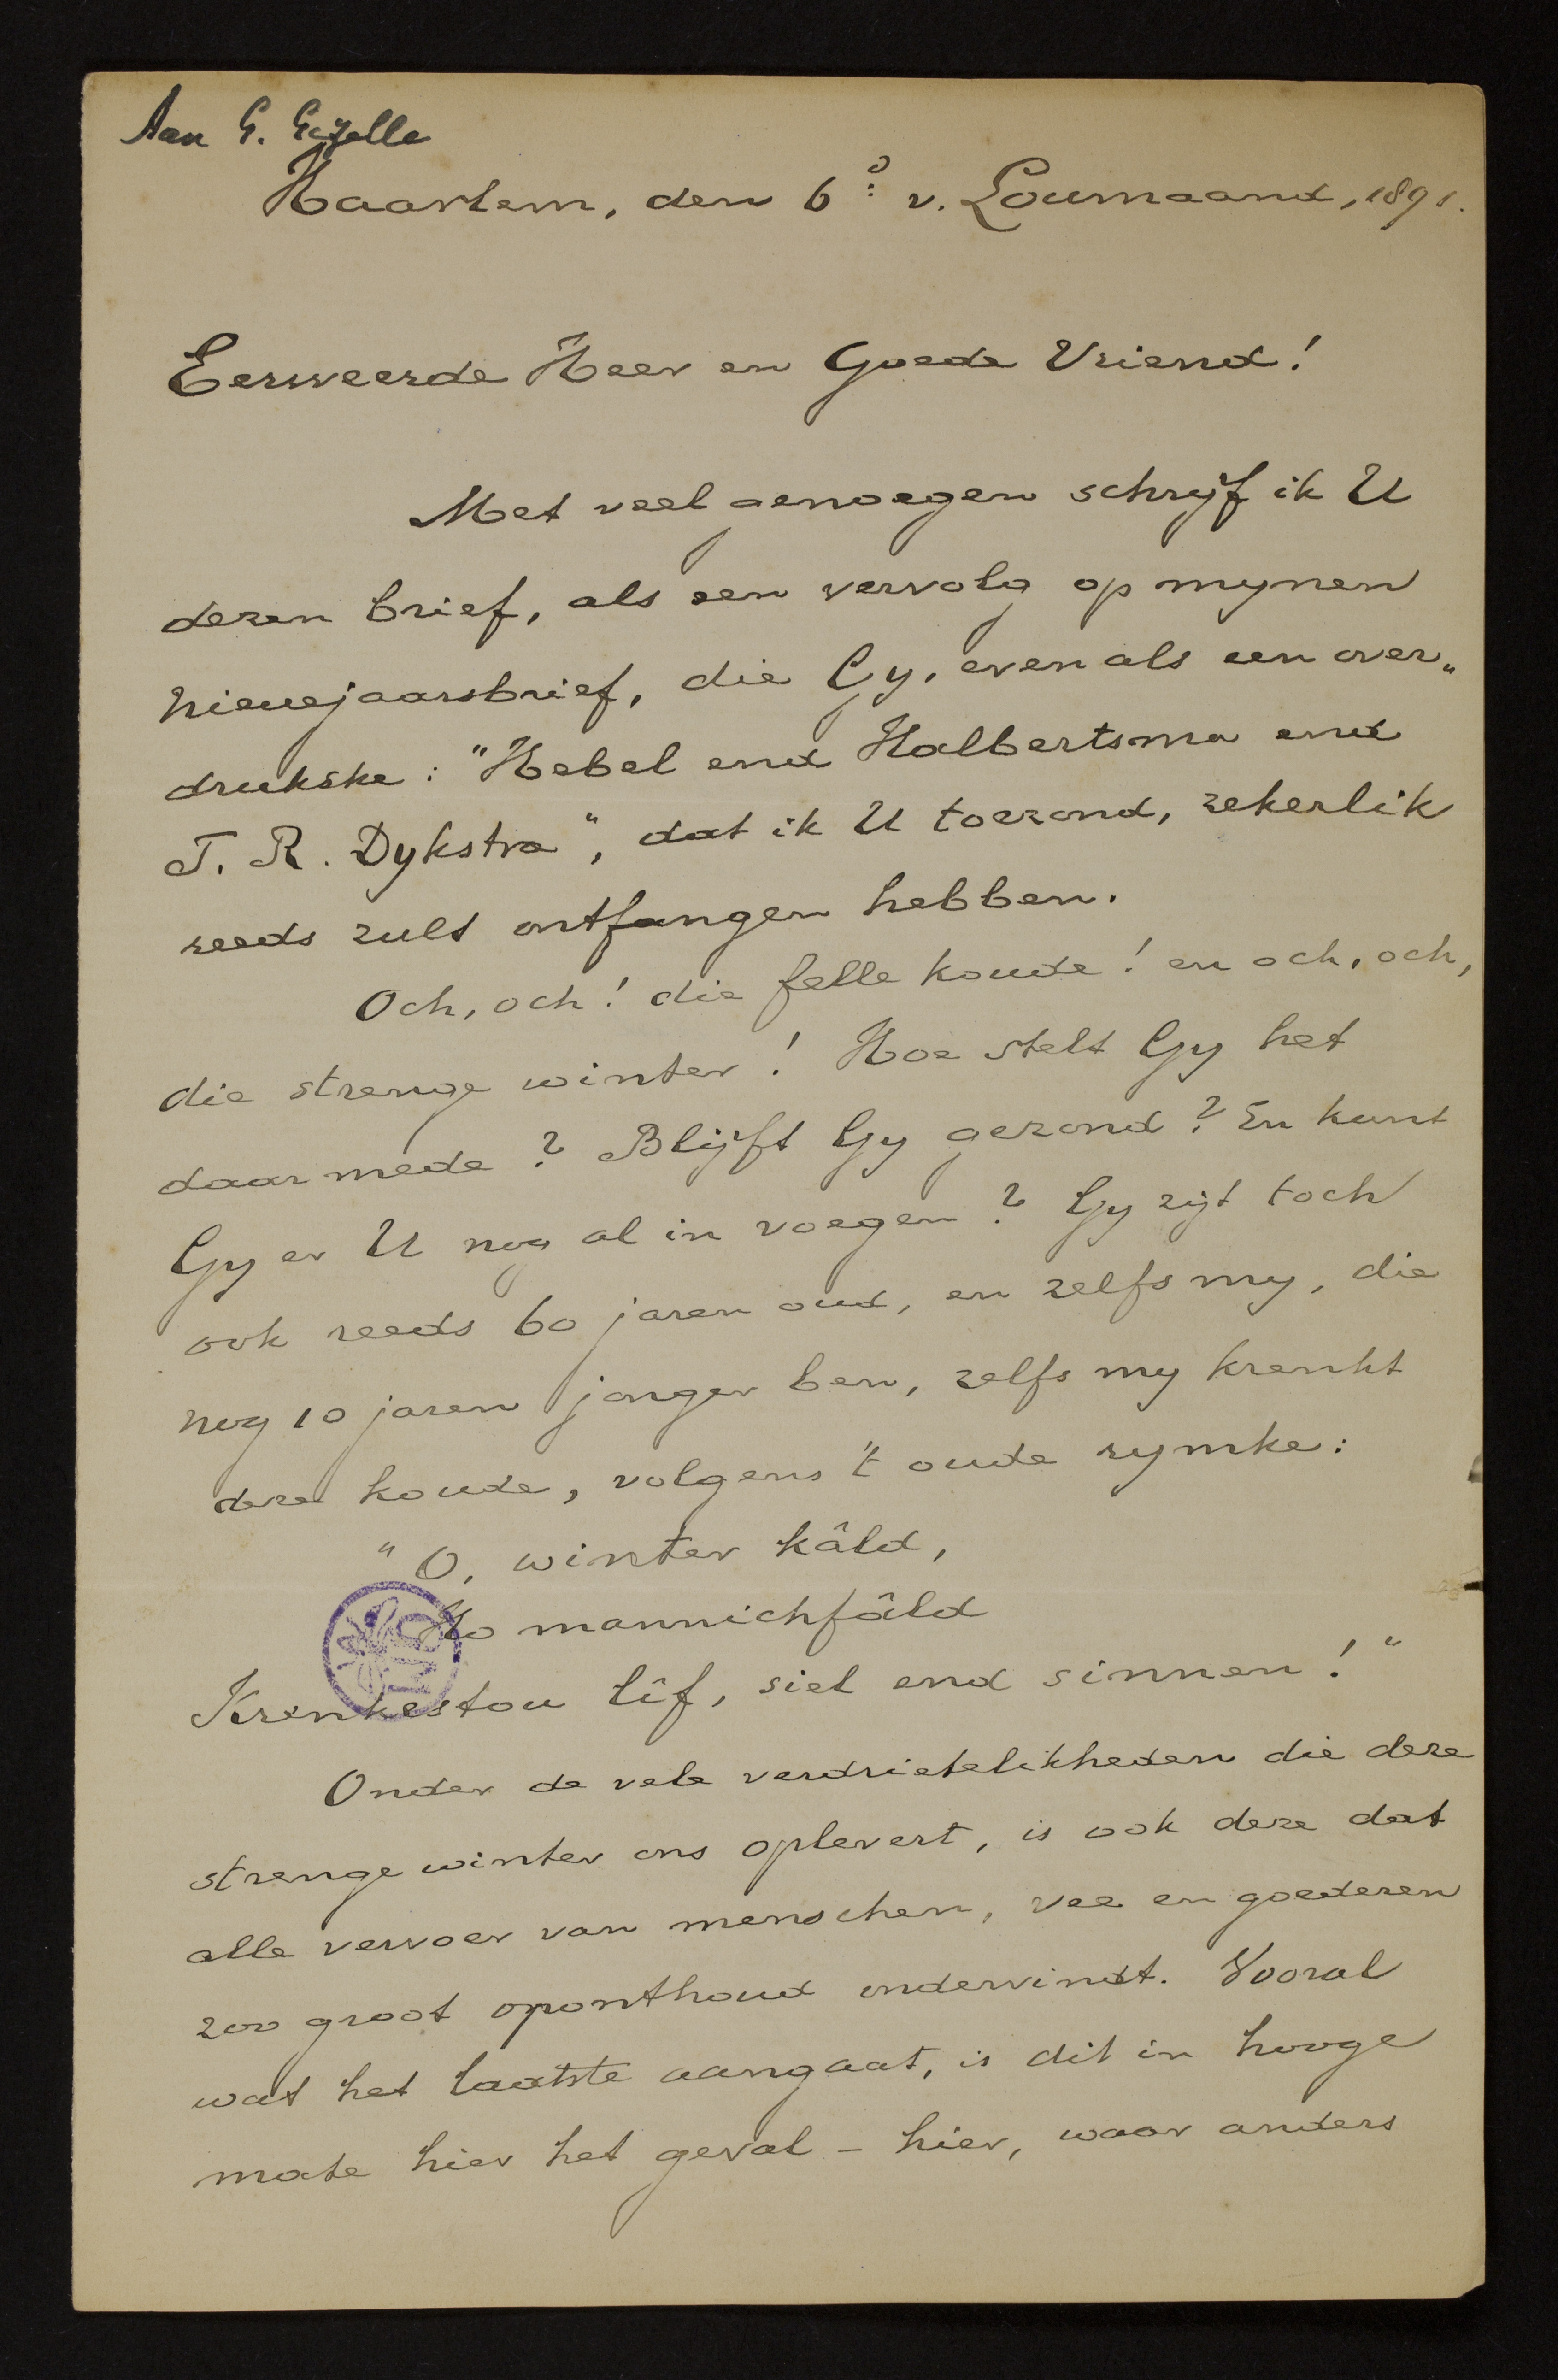 Aan G. Gezelle
Haarlem, den 6e v. Loumaand, 1891.
Eerweerde Heer en Goede Vriend!
Met veel genoegen schrijf ik U
dezen brief, als een vervolg op mynen
nieuejaarsbrief, die Gy, even als een over„
drukske: "Hebel end Halbertsma end
T. R. Dykstra", dat ik U toezond, zekerlik
reeds zult ontfangen hebben.
Och, och! die felle koude! en och, och,
die strenge winter! Hoe stelt Gy het
daar mede? Blijft Gy gezond? En kunt
Gy er U nog al in voegen? Gy zijt toch
ook reeds 60 jaren oud, en zelfs my, die
nog 10 jaren jonger ben, zelfs my krenkt
deze koude, volgens 't oude rymke:
"O, winter kâld,
Ho mannichfâld
Krenkestou lîf, siel end sinnen!"
Onder de vele verdrietelikheden die deze
strenge winter ons oplevert, is ook deze dat
alle vervoer van menschen, vee en goederen
zoo groot oponthoud ondervindt. Vooral
wat het laatste aangaat, is dit in hooge
mate hier het geval – hier, waar anders